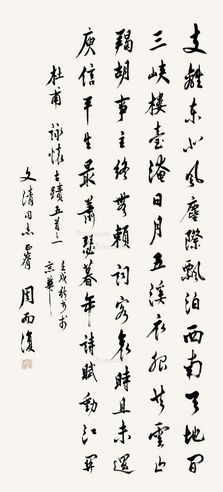 支離東北風塵際飄泊西南天地間
三峽樓臺淹日月五溪衣服共雲山
羯胡事主終無賴詞客哀時且未還
庾信平生最蕭瑟暮年詩賦動江關
杜甫詠懷古蹟五首之一
文清同志正腕
壬戌於
京華
周而復